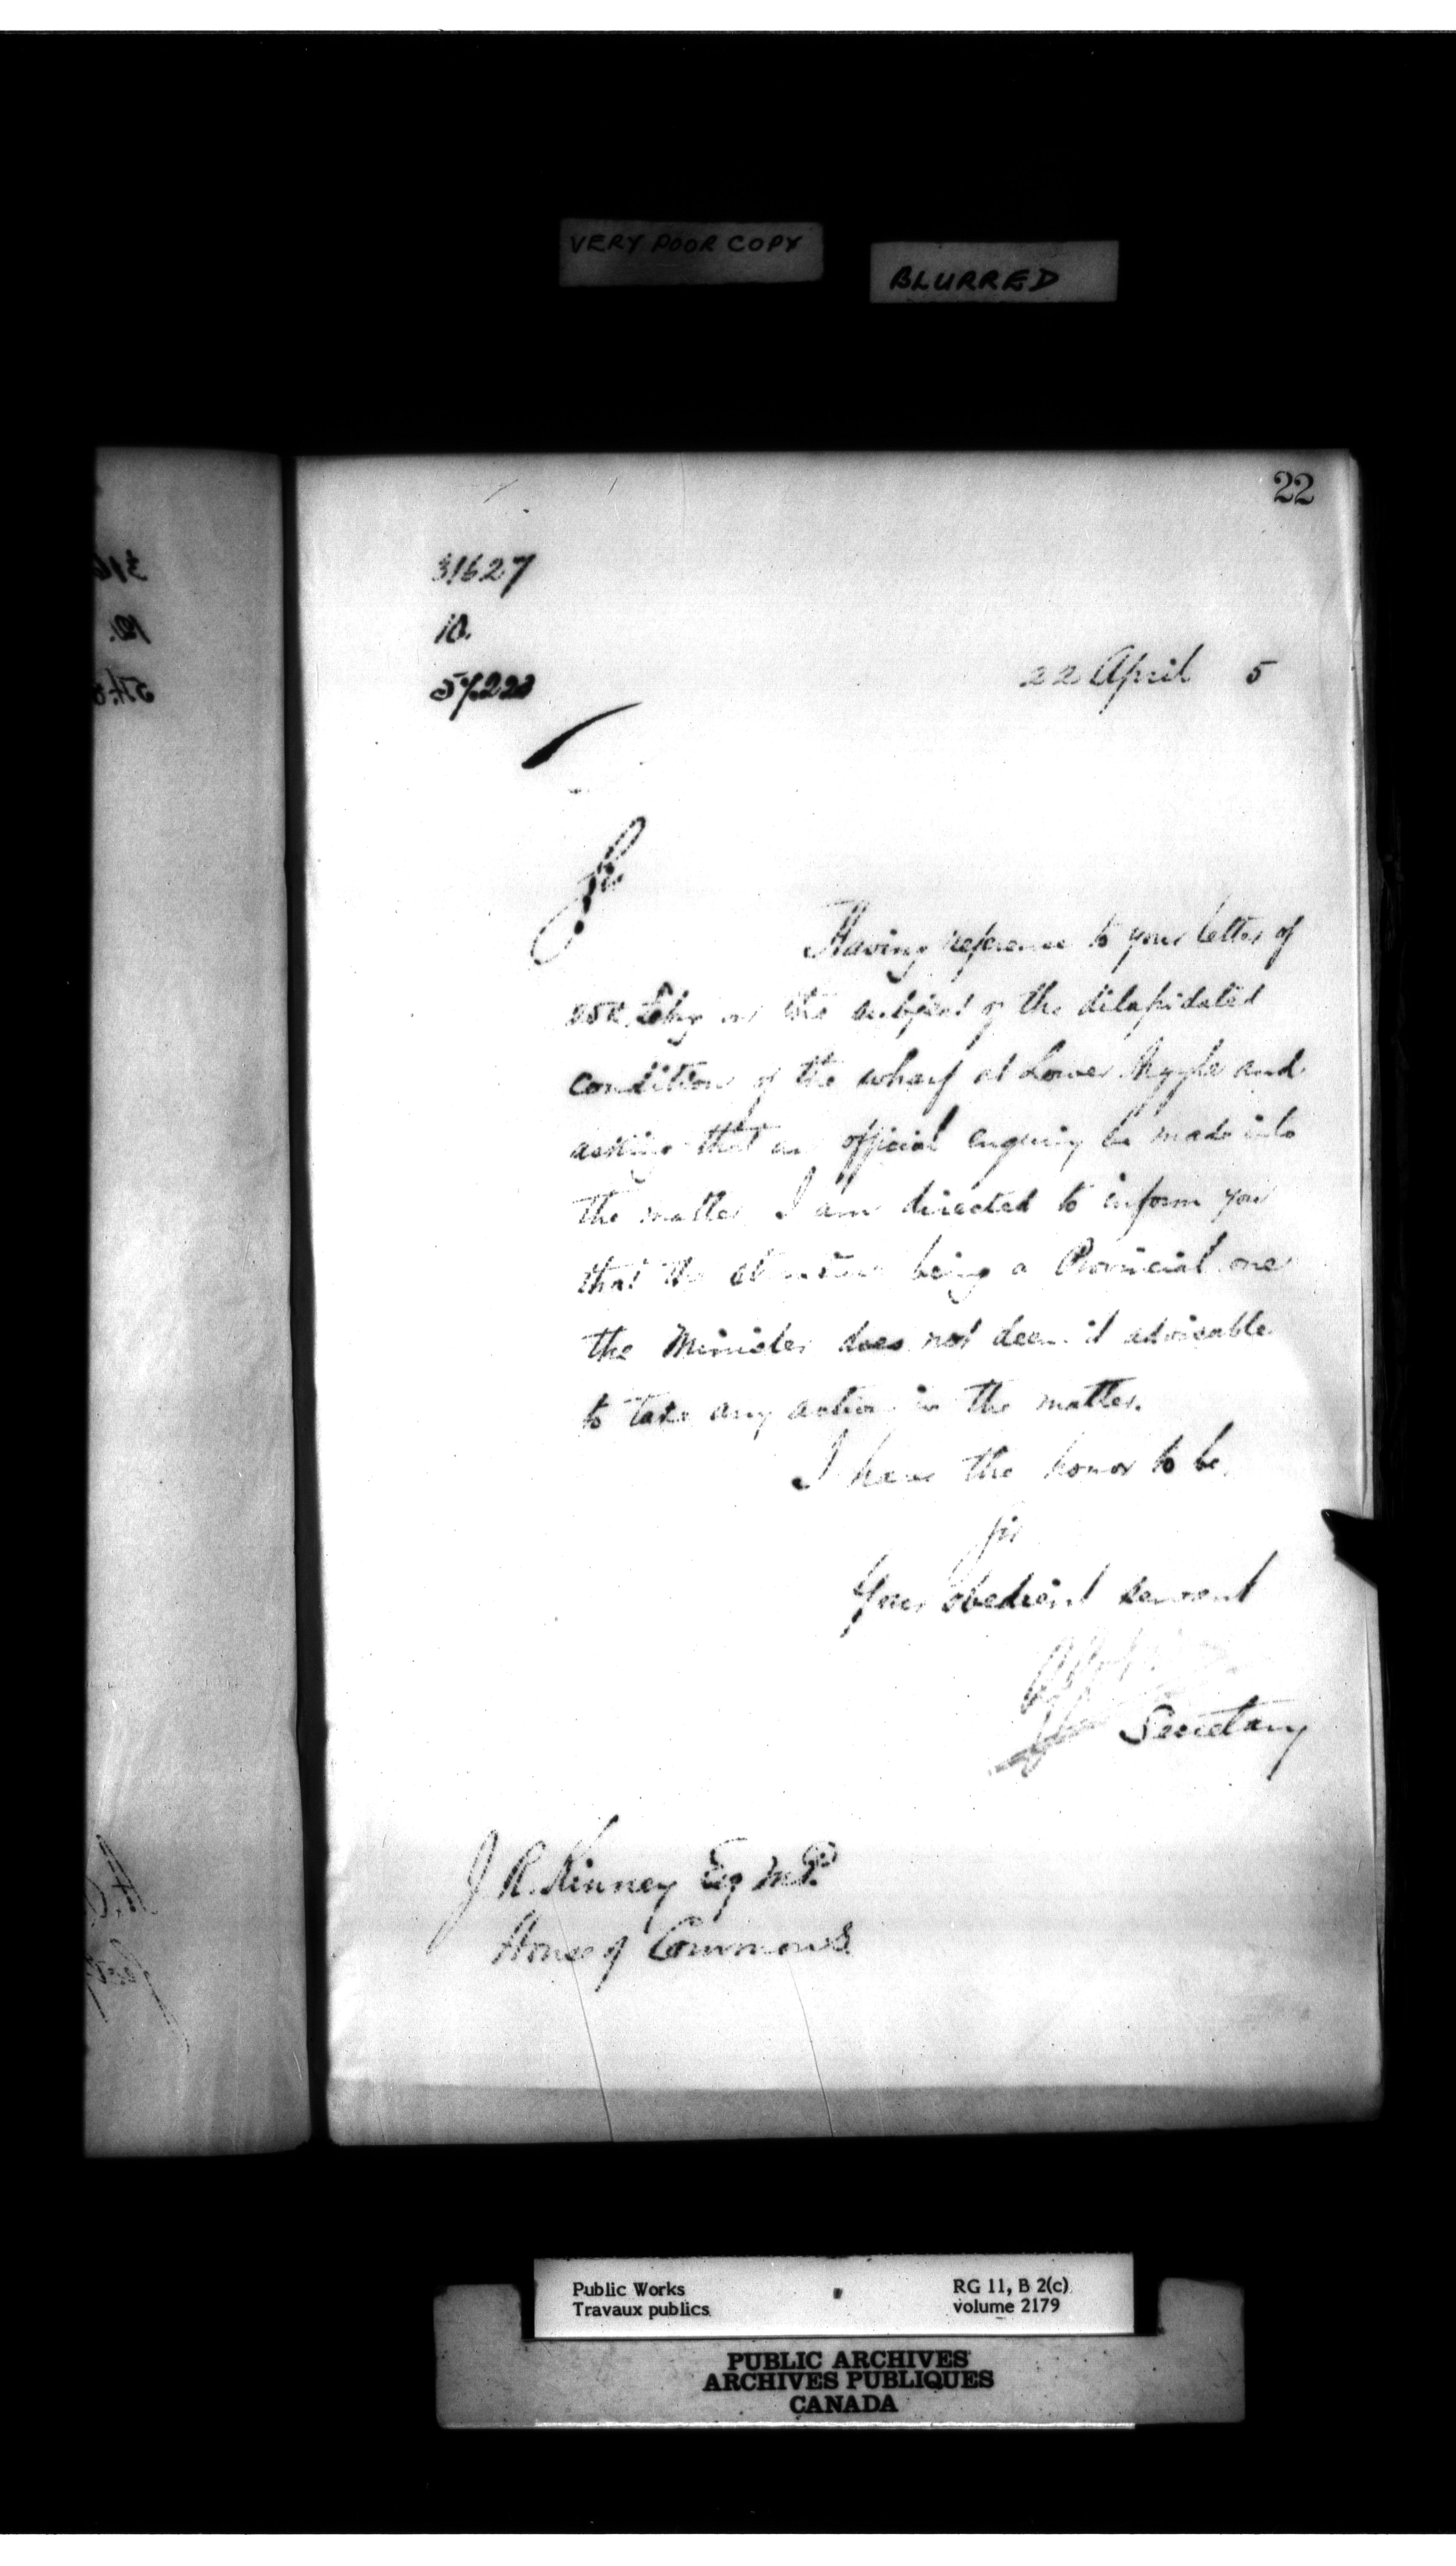 VERY POOR COPY
BLURRED
22
31627
10.
22 April 5
Sir
Having reference to your letter of
on the subject of the dilapidated
condition of the wharf at Lower Argyle and
asking that an official enquiry be made into
the matter I am directed to inform you
that the being a Provincial one
the Minister does not deem it advisable
to take any action in the matter.
I have the honor to be,
Sir
Your obedient servant
Secretary
J R. Kinney Esq M.P.
House of Commons
Public Works
Travaux publics
RG 11, B 2(c)
volume 2179
PUBLIC ARCHIVES
ARCHIVES PUBLIQUES
CANADA